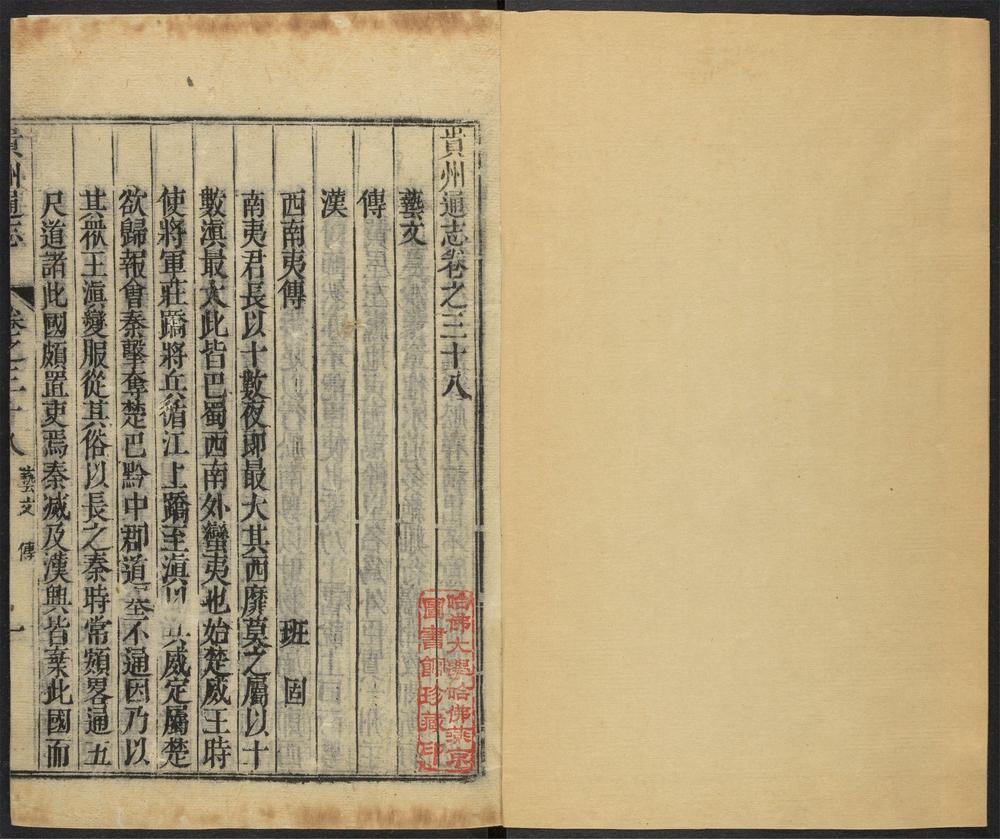 貴州通志卷之三十八
藝文
傳
漢
西南夷傳 班固
南夷君長以十數夜郎最大其西靡莫之屬以十
數滇最大此皆巴蜀西南外蠻夷也始楚威王時
使將軍莊蹻將兵循江上蹻至滇以兵威定屬楚
欲歸報會秦擊奪楚巴黔中郡道塞不通因乃以
其衆王滇變服從其俗以長之秦時常頞畧通五
尺道諸此國頗置吏焉秦滅及漢興皆棄此國而
貴州通志 卷之三十八 藝文 傳 一
哈佛大學哈佛燕京
圖書館珍藏印